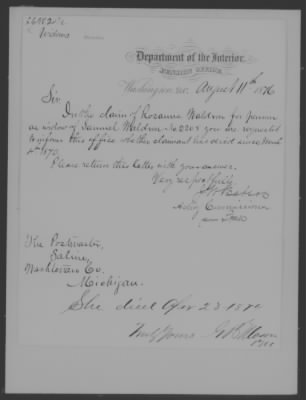 Widows
Department of the Interior,
PENSION OFFICE,
Washington, D.C. August 11th 1876
Sir
In the claim of Roxanna Waldron for Pension
as widow of Samuel Waldron No 2208 you are requested
to inform this office whether claimant has died since March
4th 1872.
Please return this letter with your answer.
Very respectfully
Acting Commissioner
The Postmaster,
Saline,
Washtenaw Co.
Michigan.
She died Apr 23
Truly Yours